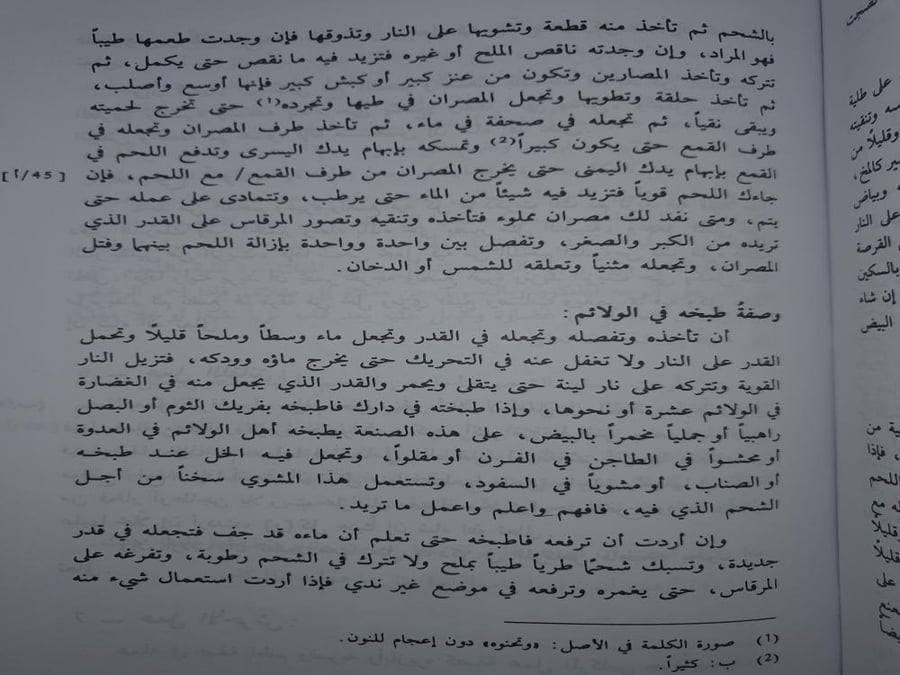 بالشحم ثم تأخذ منه قطعة وتشويها على النار وتذوقها فإن وجدت طعمها طيباً
فهو المراد، وإن وجدته ناقص الملح أو غيره فتزيد فيه ما نقص حتى يكمل، ثم
تتركه وتأخذ المصارين وتكون من عنز كبير أو كبش كبير فإنها أوسع وأصلب،
ثم تأخذ حلقة وتطويها وتجعل المصران في طيها وتجرده(1) حتى تخرج لحميته
ويبقى نقياً، ثم تجعله في صحفة في ماء، ثم تأخذ طرف المصران وتجعله في
طرف القمع حتى يكون كبيراً(2) وتمسكه بإبهام يدك اليسرى وتدفع اللحم في
القمع بإبهام يدك اليمنى حتى يخرج المصران من طرف القمع/ مع اللحم، فإن [45/أ]
جاءك اللحم قوياً فتزيد فيه شيئاً من الماء حتى يرطب، وتتمادى على عمله حتى
يتم، ومتى نفد لك مصران مملوء فتأخذه وتنقيه وتصور المرقاس على القدر الذي
تريده من الكبر والصغر، وتفصل بين واحدة وواحدة بإزالة اللحم بينهما وفتل
المصران، وتجعله مثنياً وتعلقه للشمس أو الدخان.
وصفةُ طبخه في الولائم:
أن تأخذه وتفصله وتجعله في القدر وتجعل ماء وسطاً وملحاً قليلًا وتحمل
القدر على النار ولا تغفل عنه في التحريك حتى يخرج ماؤه وودكه، فتزيل النار
القوية وتتركه على نار لينة حتى يتقلى ويحمر والقدر الذي يجعل منه في الغضارة
في الولائم عشرة أو نحوها، وإذا طبخته في دارك فاطبخه بفريك الثوم أو البصل
راهبياً أو جملياً مخمراً بالبيض، على هذه الصنعة يطبخه أهل الولائم في العدوة
أو محشواً في الطاجن في الفرن أو مقلواً، وتجعل فيه الخل عند طبخه
أو الصناب، أو مشوياً في السفود، وتستعمل هذا المشوي سخناً من أجل
الشحم الذي فيه، فافهم واعلم واعمل ما تريد.
وإن أردت أن ترفعه فاطبخه حتى تعلم أن ماءه قد جف فتجعله في قدر
جديدة، وتسبك شحمًا طرياً طيباً بملح ولا تترك في الشحم رطوبة، وتفرغه على
المرقاس، حتى يغمره وترفعه في موضع غير ندي فإذا أردت استعمال شيء منه
(1) صورة الكلمة في الأصل: «وتحنوه» دون إعجام للنون.
(2) ب: كثيراً.
على طلية
وتنقيته
وقليلًا من
كالمخ،
وبياض
على النار
القرصة
بالسكين
إن شاء
البيض
من
فإذا
اللحم
مع
قليلًا
على